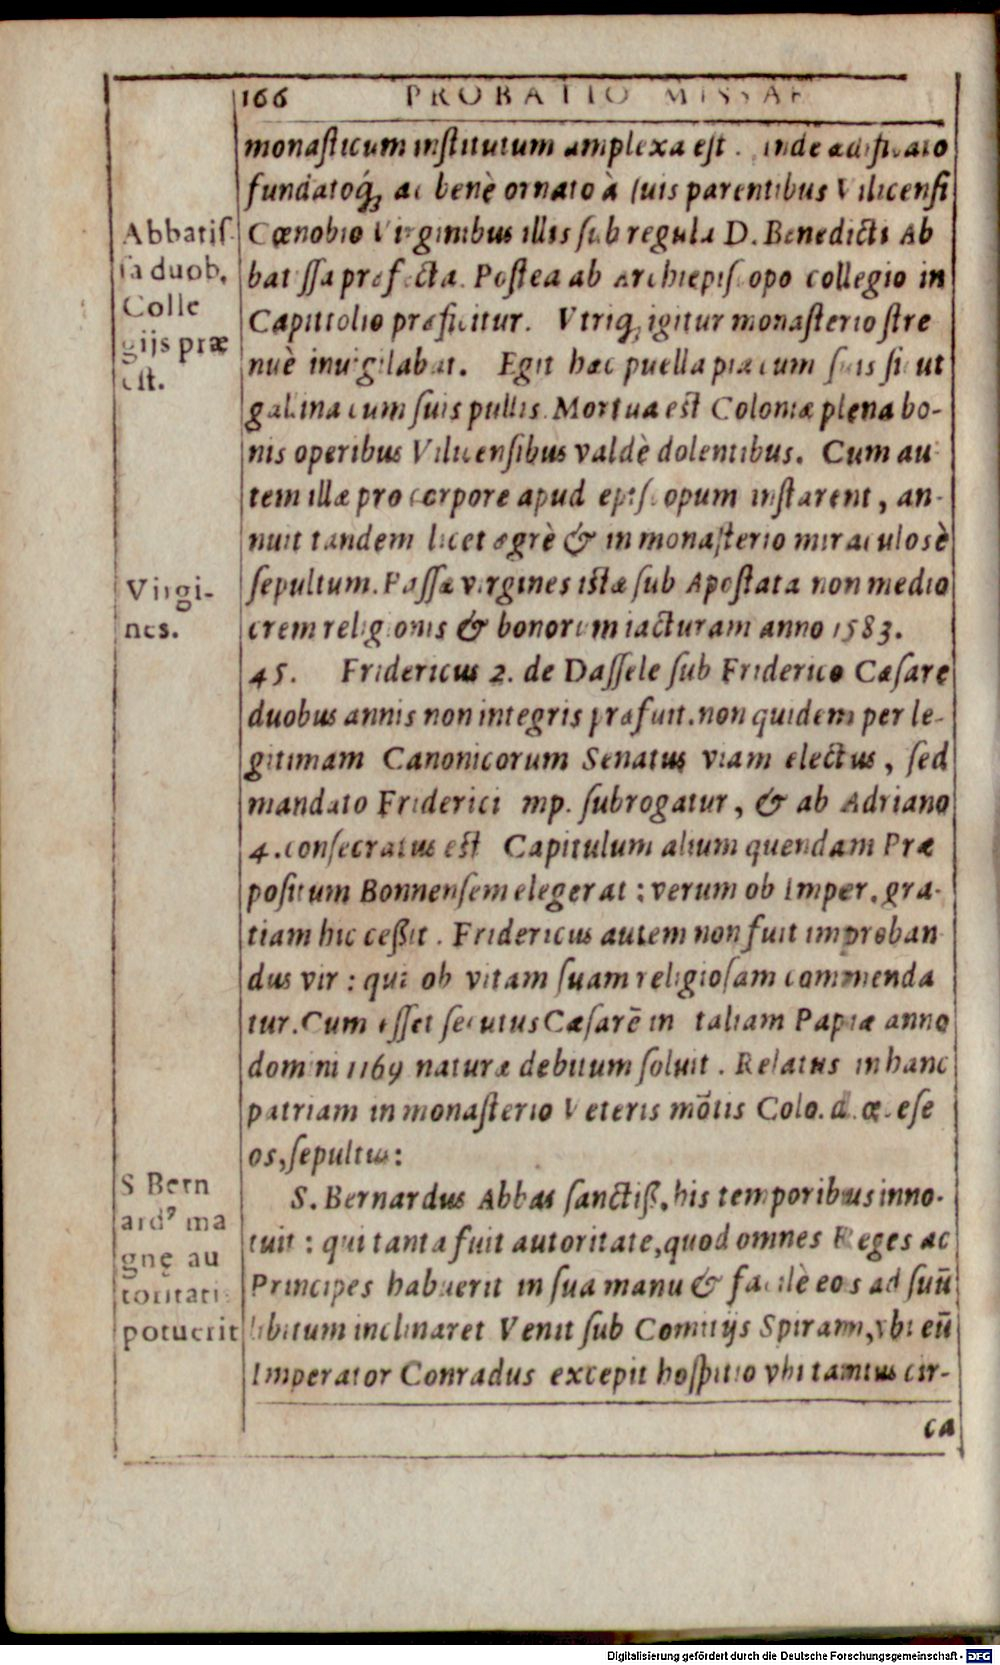 166 PROBATIO MISSAE
monaſticum inſtitutum amplexa eſt. inde ædificato
fundatoq́ꝫ ac benè ornato à ſuis parentibus Vilicenſi
Cœnobio Virginibus illis ſub regula D. Benedicti Ab
batiſſa præfecta. Poſtea ab Archiepiſcopo collegio in
Capittolio præficitur. Vtriqꝫ igitur monaſterio ſtre
nuè inuigilabat. Egit hæc puella pia cum ſuis ſicut
gallina cum ſuis pullis. Mortua eſt Coloniæ plena bo-
nis operibus Vilicenſibus valdè dolentibus. Cum au
tem illæ pro corpore apud epiſcopum inſtarent, an-
nuit tandem licet ægrè & in monaſterio miraculosè
ſepultum. Paſſæ virgines iſtæ ſub Apoſtata non medio
crem religionis & bonorum iacturam anno 1583.
45. Fridericus 2. de Daſſele ſub Friderico Cæſare
duobus annis non integris præfuit. non quidem per le-
gitimam Canonicorum Senatus viam electus, ſed
mandato Friderici mp. ſubrogatur, & ab Adriano
4. conſecratus eſt Capitulum alium quendam Præ
poſitum Bonnenſem elegerat: verum ob Imper. gra-
tiam hic ceßit. Fridericus autem non fuit improban
dus vir: qui ob vitam ſuam religioſam commenda
tur. Cum eſſet ſecutus Cæſarē in taliam Papiæ anno
domini 1169 naturæ debitum ſoluit. Relatus in hanc
patriam in monaſterio Veteris mōtis Colo. d. œ. eſe
os, ſepultus:
S. Bernardus Abbas ſanctiß. his temporibus inno-
tuit: qui tanta fuit autoritate, quod omnes Reges ac
Principes habuerit in ſua manu & facilè eos ad ſuū
libitum inclinaret Venit ſub Comitijs Spiram, vbi eū
Imperator Conradus excepit hoſpitio vbi tantus cir-
ca
Abbatiſ-
ſa duob.
Colle
gijs præ
eſt.
Virgi-
nes.
S Bern
ardꝰ ma
gnę au
toritati
potuerit
Digitalisierung gefördert durch die Deutsche Forschungsgemeinschaft - DFG